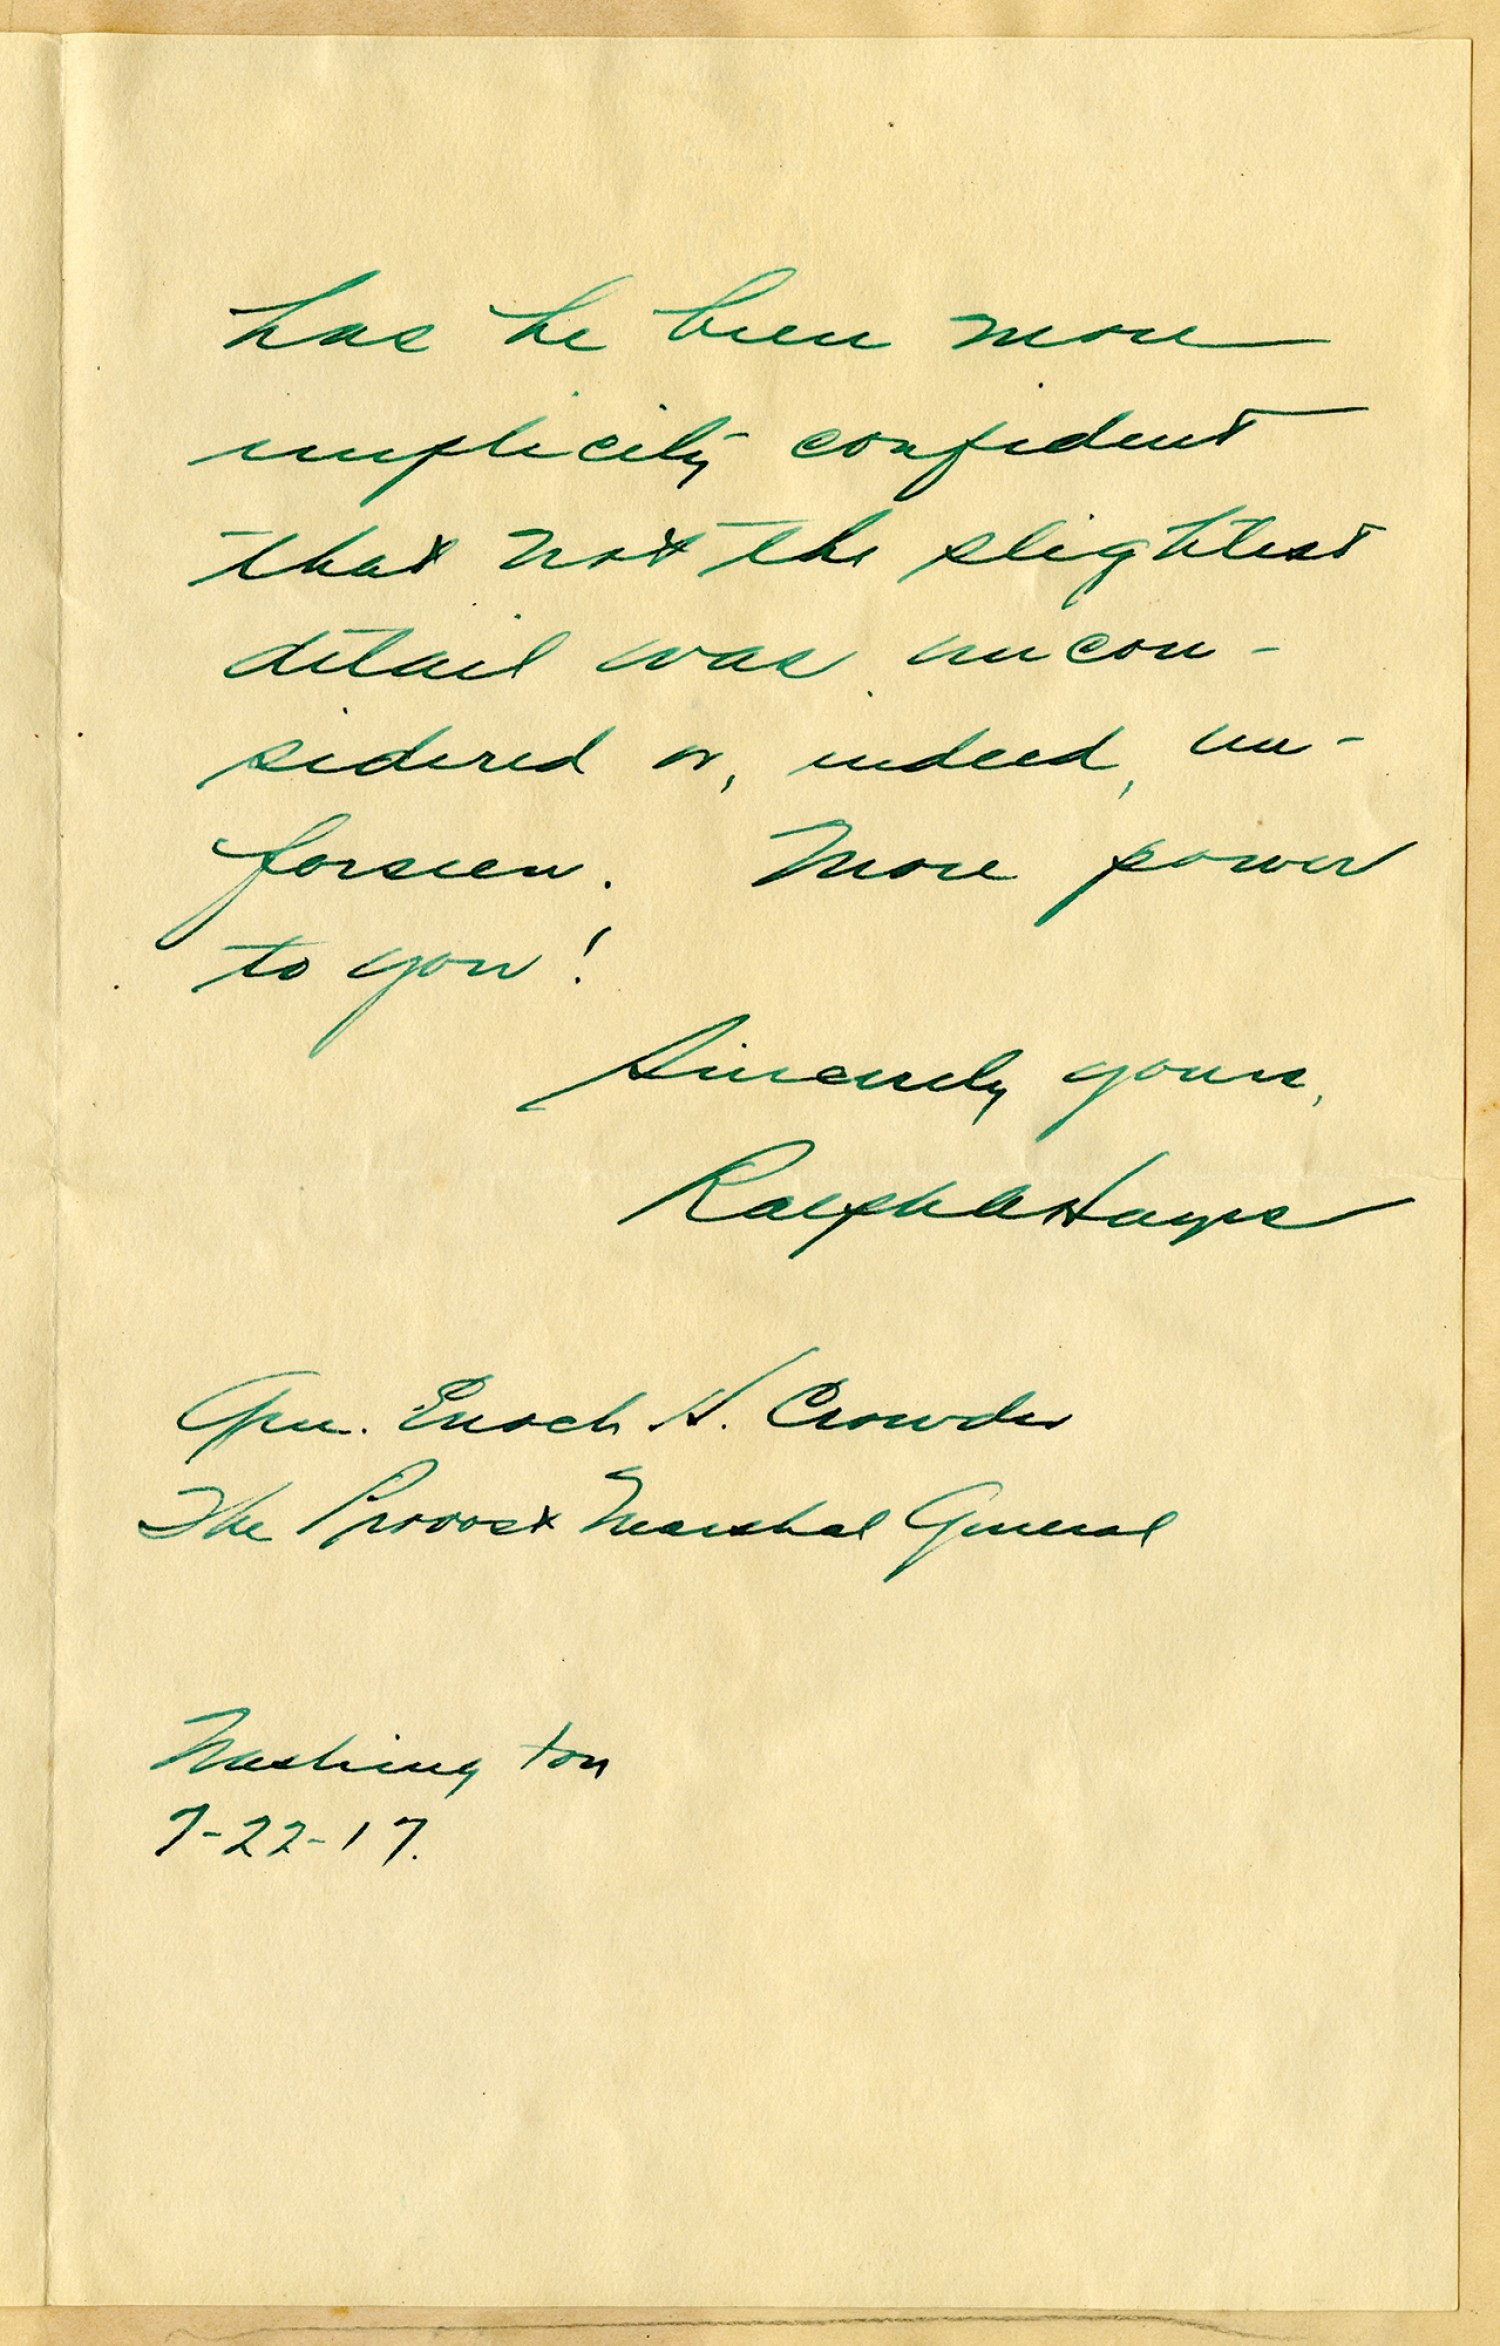 has he been more
implicitly confident
that not the slightest
detail was uncon-
sidered or, indeed, un-
forseen. More power
to you!
Sincerely yours,
Ralph A Hayes
Gen. Enoch H. Crowder
The Provost Marshal General
Washington
7-22-17.